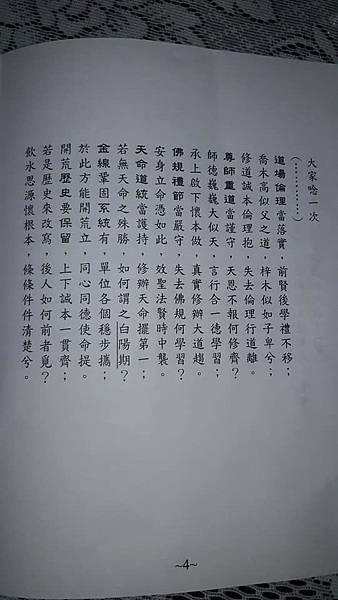 大家唸一次
(‥‥‥‥‥)
道場倫理當落實，前賢後學禮不移；
喬木高似父之道，梓木似如子卑兮；
修道誠本倫理抱，失去倫理行道離。
尊師重道當謹守，天恩不報何修齊？
師德巍巍大似天，言行合一德學習；
承上啟下懷本做，真實修辦大道趨。
佛規禮節當嚴守，失去佛規何學習？
安身立命憑如此，效聖法賢時中襲。
天命道統當護持，修辦天命擺第一；
若無天命之殊勝，如何謂之白陽期？
金線鞏固系統有，單位各個穩步攜；
於此方能開荒立，同心同德使命提。
開荒歷史要保留，上下誠本一貫齊；
若是歷史來改寫，後人如何前者覓？
飲水思源懷根本，條條件件清楚兮。
~4~